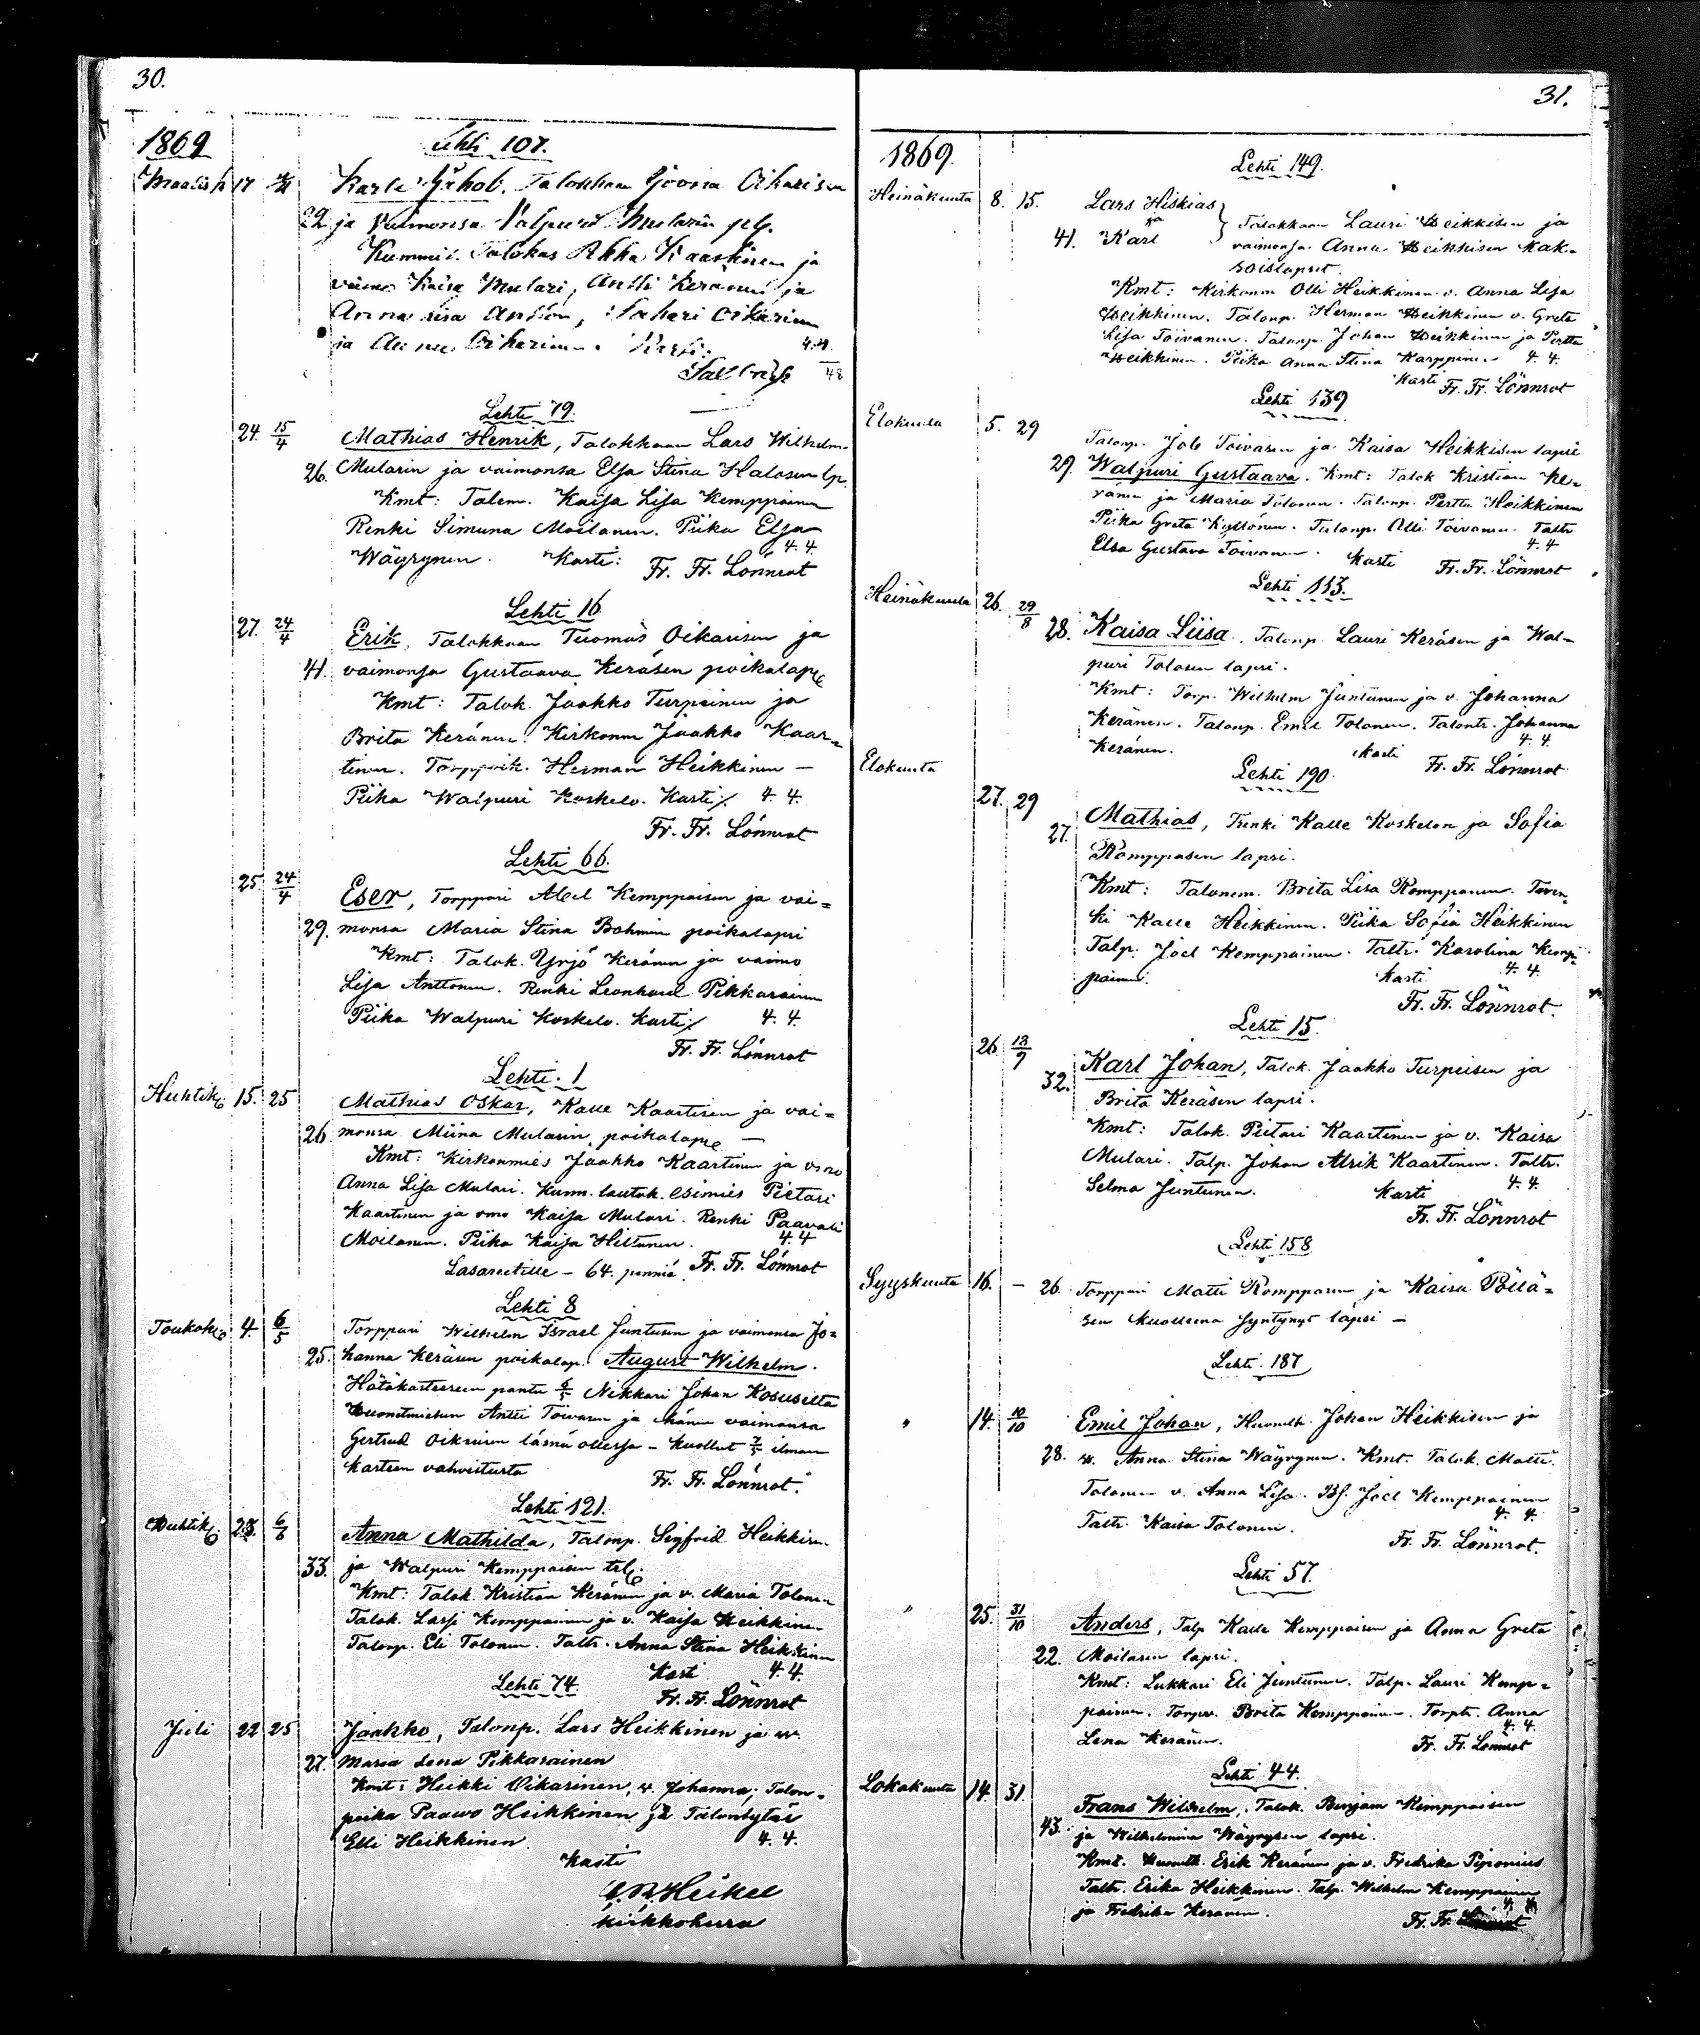 30.
1869
Lehti 107.
Maalisk 17
Karle Jakob, Talokkaan Joona Oikarisen
22 ja Vaimonsa Valpurin Mularin plg.
Kummit: Talokas Pekka Kaaskinen ja
vaimo Kaisa Mulari, Antti Keränen ja
Anna Lisa Antton, Sakari Oikarinen
ja Anna Oikarinen. Kasti.
4.4.
48
Lehti 79.
24. 15/4 Mathias Henrik, Talokkaan Lars Wilhelm
26. Mularin ja vaimonsa Elsa Stina Halosen lp.
Kmt: Talem. Kaisa Lisa Kemppainen
Renki Simuna Moilanen. Piika Elsa
4. 4.
Wäyrynen. Kasti: Fr. Fr. Lönnrot
Lehti 16
27. 24/4 Erik, Talokkaan Tuomas Oikarisen ja
41. vaimonsa Gustaava Keräsen poikalapse
Kmt: Talok. Jaakko Turpeinen ja
Brita Keränen. Kirkonm Jaakko Kaar=
tinen. Torpparik. Herman Heikkinen —
Piika Walpuri Koskelo. Kasti 4. 4.
Fr. Fr. Lönnrot
Lehti 66.
25 24/4 Eser, Torppari Abel Kemppaisen ja vai=
29. monsa Maria Stina Bohmin poikalapsi
Kmt: Talok. Yrjö Keränen ja vaimo
Lisa Anttonen. Renki Leonhard Pikkarainen
Piika Walpuri Koskelo. Kasti 4. 4.
Fr. Fr. Lönnrot
Lehti. 1
Huhtik. 15. 25 Mathias Oskar, Kalle Kaartisen ja vai=
26 monsa Miina Mularin poikalapse —
Kmt: Kirkonmies Jaakko Kaartinen ja vmo
Anna Lisa Mulari. Kunn. lautak. esimies Pietari
Kaartinen ja vmo Kaisa Mulari. Renki Paavali
Moilanen. Piika Kaisa Hiltunen. 4. 4
Lasareetille – 64. penniä. Fr. Fr. Lönnrot
Lehti 8
Toukok. 4. 6/5 Torppari Wilhelm Israel Juntusen ja vaimonsa Jo=
25. hanna Keräsen poikalap. August Wilhelm.
Hätäkasteeseen pantu 4/5 Nikkari Johan Kososelta
Huonemiehen Antti Toivasen ja hänen vaimonsa
Gertrud Oikarisen läsnä ollessa – kuollut 7/5 ilman
kasteen vahvistusta Fr. Fr. Lönnrot.
Lehti 121.
Huhtik. 23. 6/6 Anna Mathilda, Talonp. Sigfrid Heikkisen
33. ja Walpuri Kemppaisen
Kmt: Talok. Kristian Keränen ja v. Maria Tolonen
Talok. Lassi Kemppainen ja v. Kaisa Heikkinen
Talonp. Eli Tolonen. Taltr. Anna Stina Heikkinen
Kasti 4. 4.
Lehti 74. Fr. Fr. Lönnrot
Juli 22 25 Jaakko, Talonp. Lars Heikkinen ja w.
27. Maria Lena Pikkarainen
Kmt: Heikki Oikarinen, v. Johanna, Talon=
poika Paawo Heikkinen ja Talontytär
Elli Heikkinen. 4. 4.
Kasti
Heikel
kirkkoherra
31.
1869.
Lehti 149.
Heinäkuuta 8. 15. Lars Hiskias
ja
41. Karl
Talokkaan Lauri Heikkisen ja
vaimonsa Anna Heikkisen kak=
soislapset.
Kmt: Kirkonm Olli Heikkinen v. Anna Lisa
Heikkinen. Talonp. Herman Heikkinen v. Greta
Lisa Toivanen. Talonp. Johan Heikkinen ja Pertta
Heikkinen. Piika Anna Stina Karppinen 4. 4.
Kasti Fr. Fr. Lönnrot
Lehti 139
Elokuuta 5. 29 Talonp. Job Toivasen ja Kaisa Heikkisen lapsi
29. Walpuri Gustaava. Kmt: Talok Kristian Ke=
ränen ja Maria Tolonen. Talonp. Perttu Heikkinen
Piika Greta Kyllönen. Talonp. Olli Toivanen. Taltr
Elsa Gustava Toivanen. 4. 4
Kasti Fr. Fr. Lönnrot
Lehti 113.
Heinäkuuta 26. 29/8
28. Kaisa Liisa, Talonp. Lauri Keräsen ja Wal=
puri Tolosen lapsi.
Kmt: Torp. Wilhelm Juntunen ja v. Johanna
Keränen. Talonp. Emil Tolonen. Talontr. Johanna
Keränen. Kasti 4. 4.
Fr. Fr. Lönnrot
Lehti 190.
Elokuuta
27. 29 Mathias, Renki Kalle Koskelon ja Sofia
27. Romppasen lapsi.
Kmt: Talonem. Brita Lisa Romppanen. Toren=
ki Kalle Heikkinen. Piika Sofia Heikkinen
Talp. Joel Kemppainen. Taltr. Karolina Kemp=
painen. Kasti 4. 4.
Fr. Fr. Lönnrot.
Lehti 15.
26 12/9 Karl Johan, Talok. Jaakko Turpeisen ja
32. Brita Keräsen lapsi.
Kmt: Talok. Pietari Kaartinen ja v. Kaisa
Mulari. Talp. Johan Alrik Kaartinen. Taltr.
Selma Juntunen. Kasti 4. 4.
Fr. Fr. Lönnrot
Lehti 158
Syyskuuta 16. – 26. Torppari Matti Romppasen ja Kaisa Pölä=
sen kuolleena syntynyt lapsi –
Lehti. 187
" 14. 10/10 Emil Johan, Huonelk. Johan Heikkisen ja
28. w. Anna Stina Wäyrynen. Kmt. Talok. Matti
Tolonen v. Anna Lisa. Joel Kemppainen
Taltr. Kaisa Tolonen. 4. 4.
Fr. Fr. Lönnrot.
Lehti 57.
" 25. 31/10 Anders, Talp Kalle Kemppaisen ja Anna Greta
22. Moilasen lapsi.
Kmt: Lukkari Eli Juntunen. Talp. Lauri Kemp=
painen. Brita Kemppainen. Torptr. Anna
Lena Keränen. 4. 4.
Fr. Fr. Lönnrot
Lehti 44.
Lokakuuta 14 31. Frans Wilhelm, Talok. Benjam Kemppaisen
43. ja Wilhelmina Wäyrysen lapsi.
Kmt. Huonelk. Erik Keränen ja v. Fredrika Piponius
Taltr. Erika Heikkinen. Talp. Wilhelm Kemppainen
ja Fredrika Keränen. 4. 4.
Fr. Fr. Lönnrot